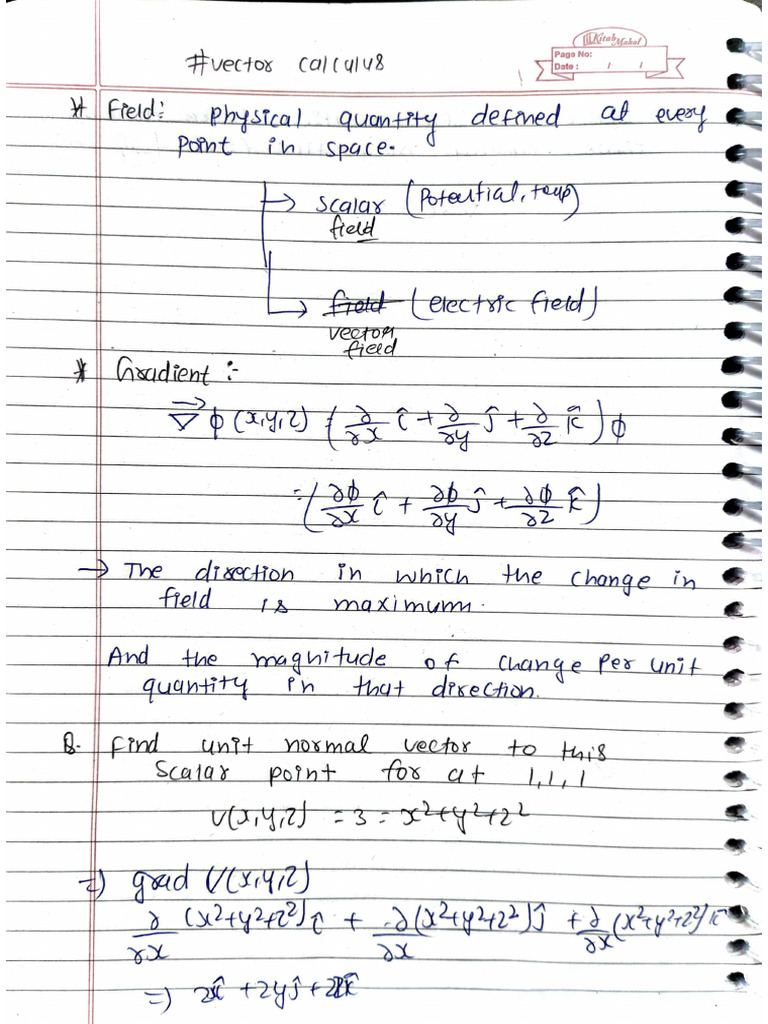 #vector calculus
Kitab Mahal
Page No:
Date : / /
* Field: physical quantity defined at every
point in space.
→ scalar (Potential, temp)
field
→ field (electric field)
vector
field
* Gradient :-
∇⃗ ϕ (x,y,z) (∂/∂x î + ∂/∂y ĵ + ∂/∂z k̂) ϕ
= (∂ϕ/∂x î + ∂ϕ/∂y ĵ + ∂ϕ/∂z k̂)
→ The direction in which the change in
field is maximum.
And the magnitude of change per unit
quantity in that direction.
Q. Find unit normal vector to this
scalar point for at 1,1,1
V(x,y,z) = 3 = x²+y²+z²
=) grad V(x,y,z)
∂/∂x (x²+y²+z²) î + ∂/∂x (x²+y²+z²) ĵ + ∂/∂x (x²+y²+z²) k̂
=) 2xî + 2yĵ + 2zk̂